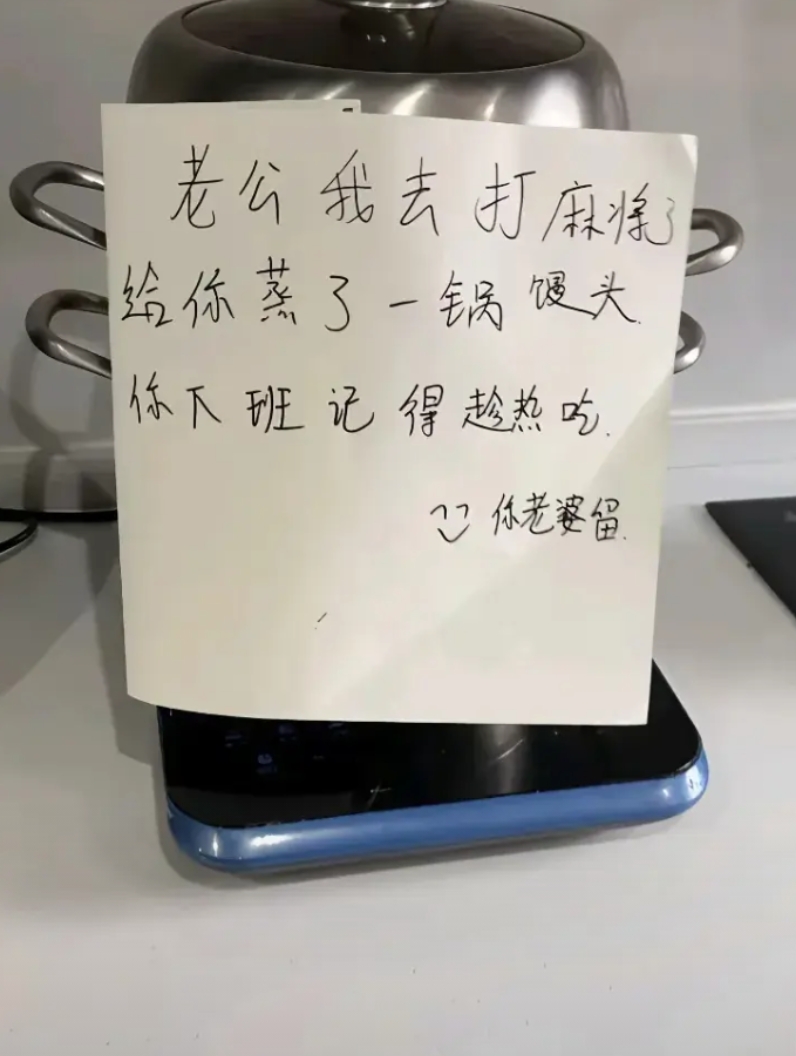 老公我去打麻将了
给你蒸了一锅馒头.
你下班记得趁热吃.
你老婆留.